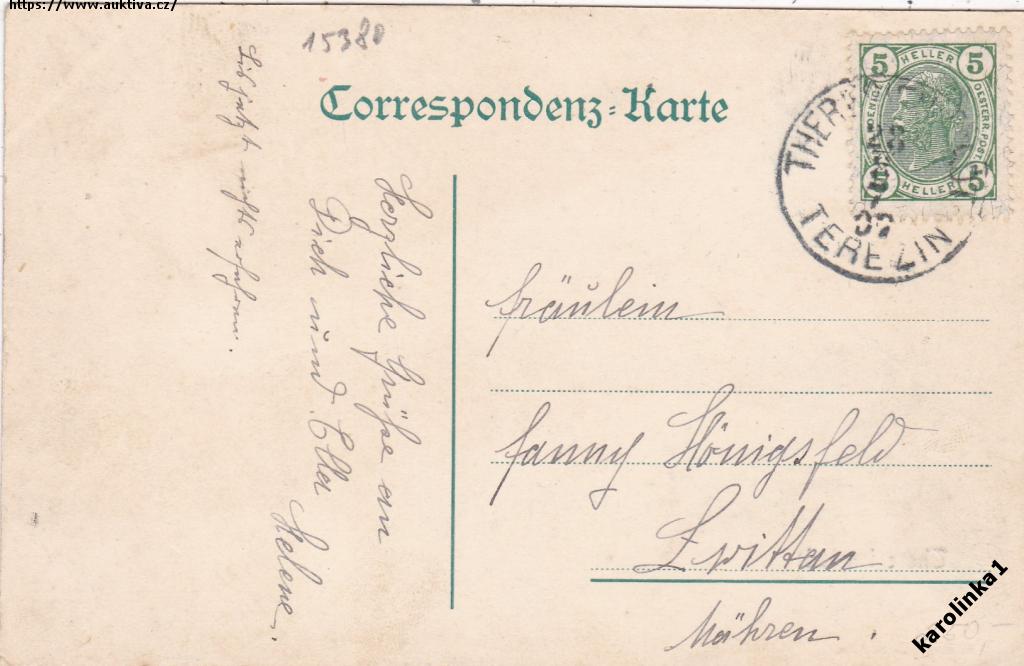 https://www.auktiva.cz/
15380
Correspondenz-Karte
5 HELLER 5
OESTERR. POST
5 HELLER 5
THERE
TEREZIN
Herzliche Grüße an
Dich und Ella
Helene.
Bis jetzt nichts erfahren.
Fräulein
Fanny Königsfeld
Zwittau
Mähren.
karolinka1